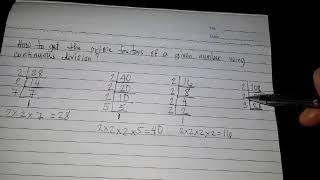 How to get the prime factors of a given number using
continuous division
2 28
2 14
7 7
1
2 x 2 x 7 = 28
2 40
2 20
2 10
5 5
1
2x2x2x5=40
2 16
2 8
2 4
2 2
1
2x2x2x2=16
2
2